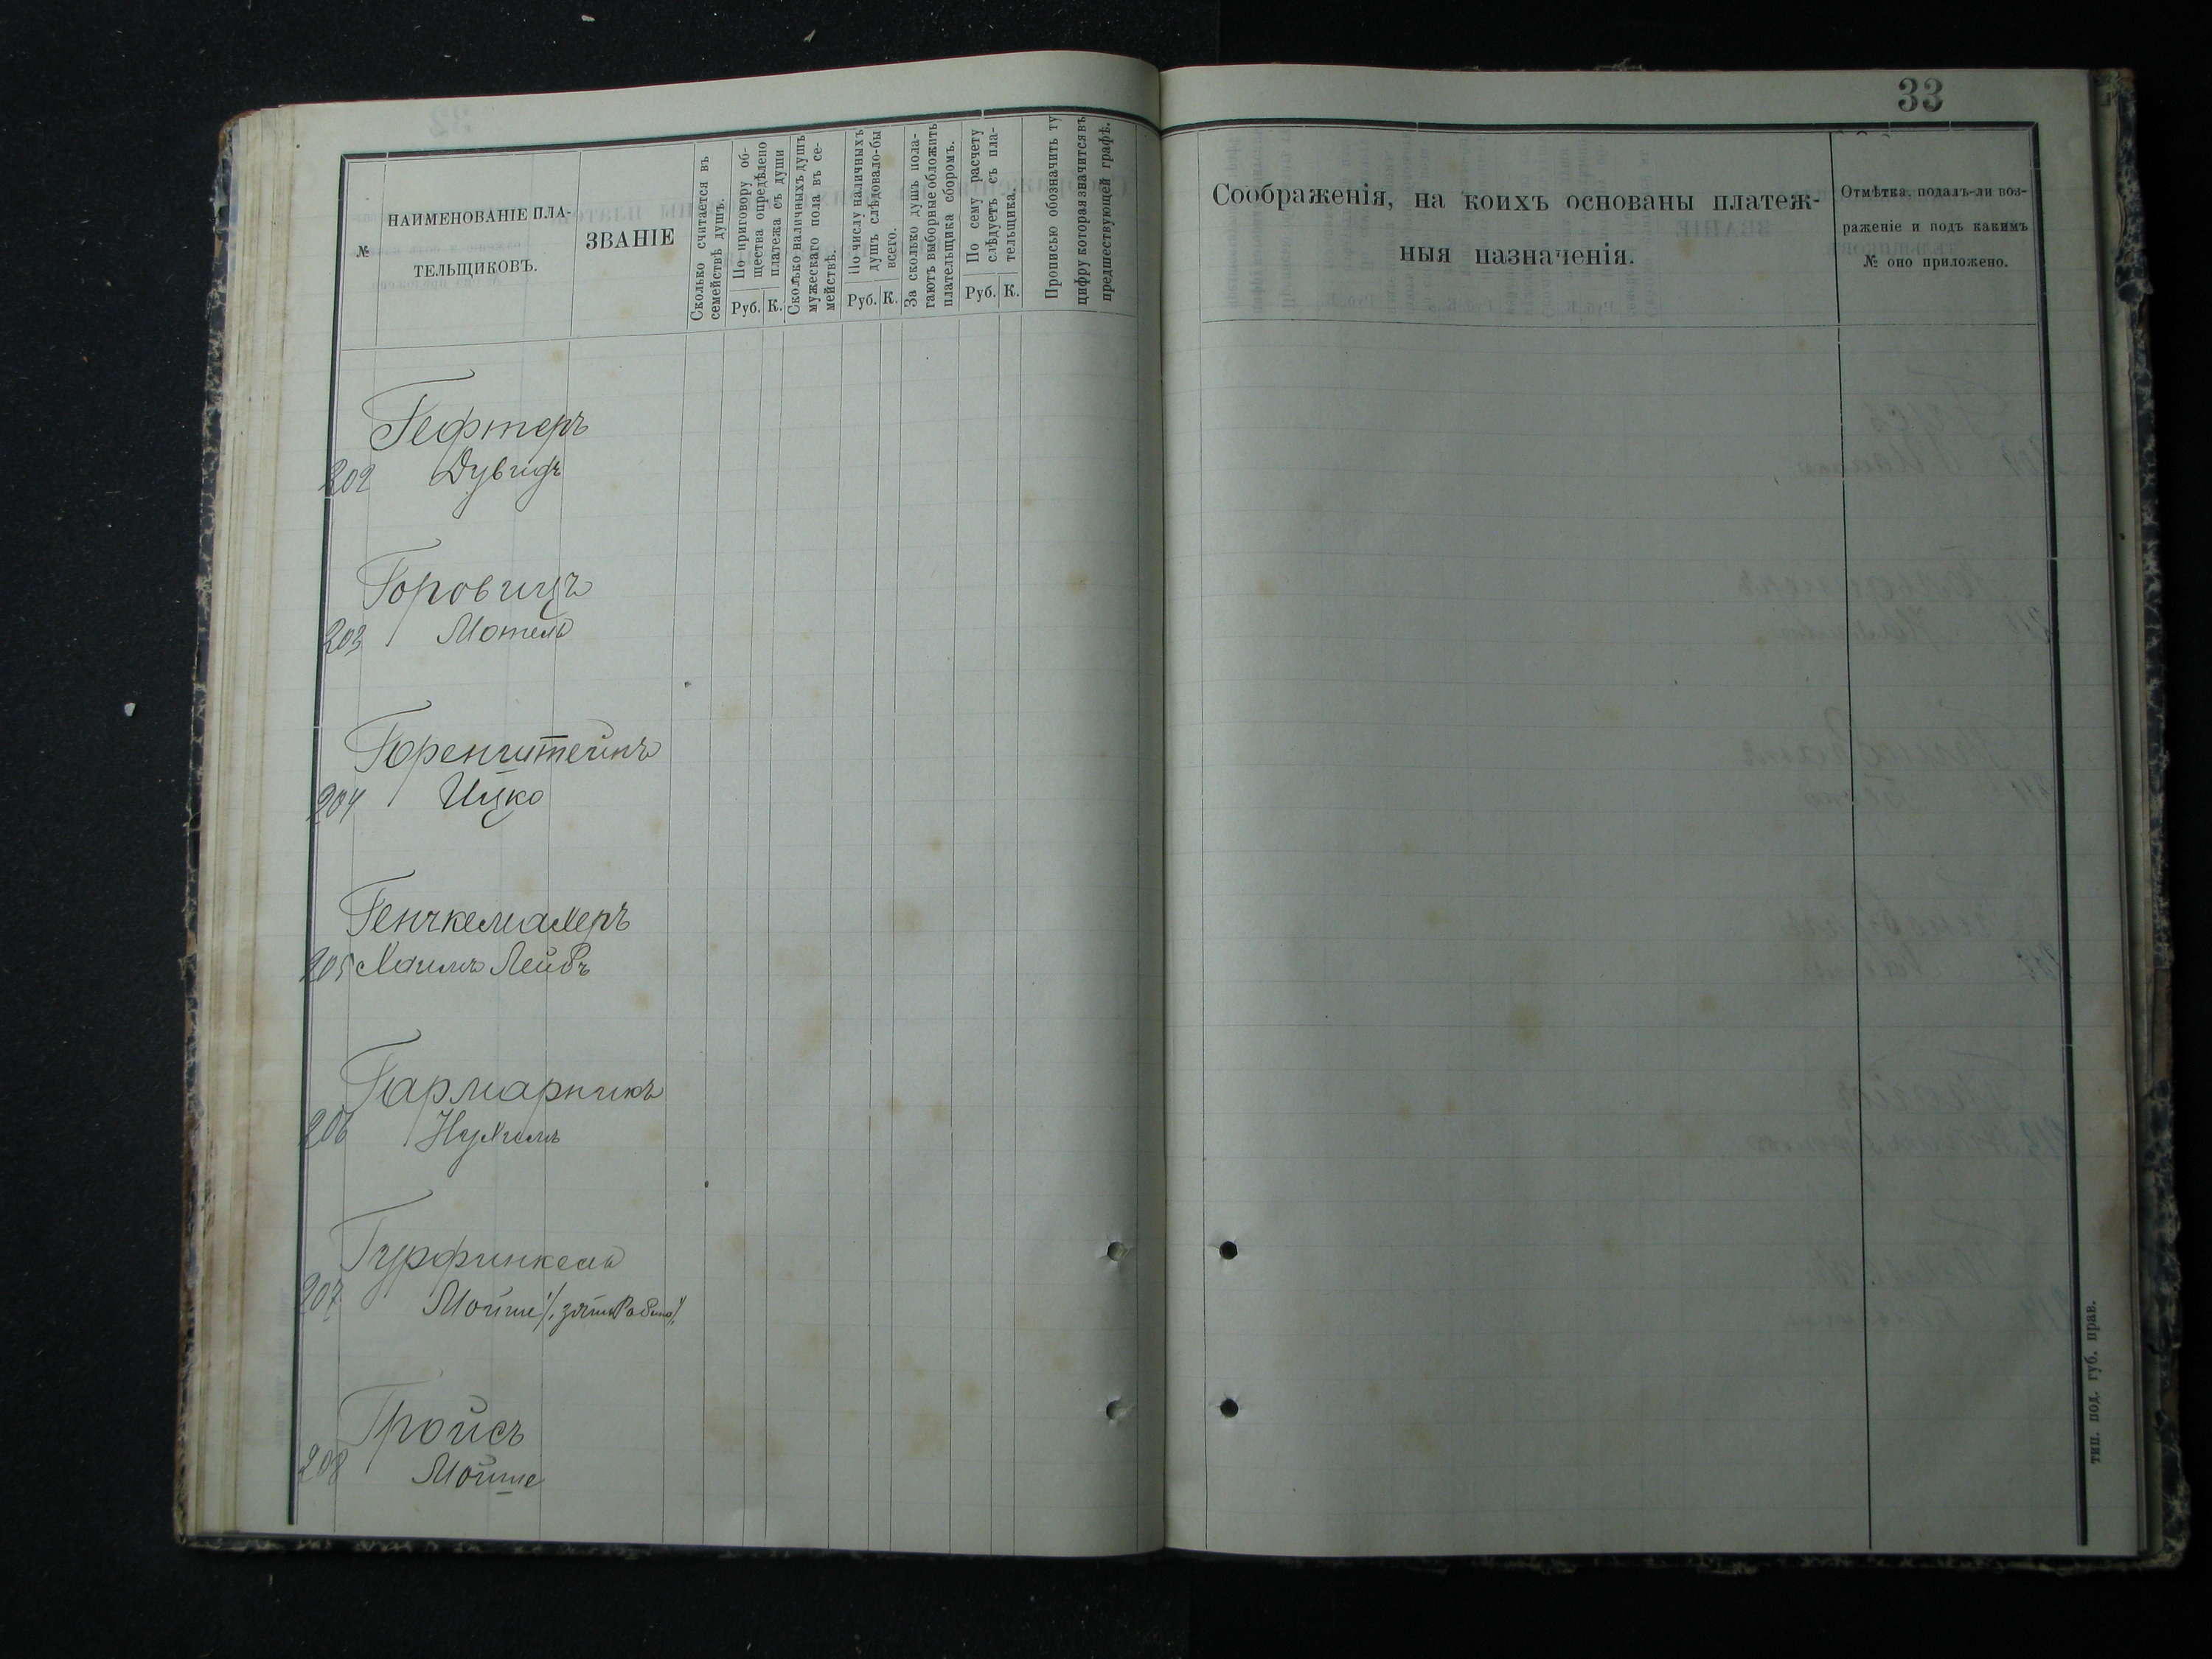 33
№
НАИМЕНОВАНІЕ ПЛА-
ТЕЛЬЩИКОВЪ.
ЗВАНІЕ
Сколько считается въ
семействѣ душъ.
По приговору об-
щества опредѣлено
платежа съ души
Руб. К.
Сколько наличныхъ душъ
мужескаго пола въ се-
мействѣ.
По числу наличныхъ
душъ слѣдовало-бы
всего.
Руб. К.
За сколько душъ пола-
гаютъ выборные обложить
плательщика сборомъ.
По сему расчету
слѣдуетъ съ пла-
тельщика.
Руб. К.
Прописью обозначить ту
цифру которая значится въ
предшествующей графѣ.
Соображенія, на коихъ основаны платеж-
ныя назначенія.
Отмѣтка, подалъ-ли воз-
раженіе и подъ какимъ
№ оно приложено.
Гефтеръ
202 Дувидъ
Горовицъ
203 Мотель
Горенштейнъ
204 Ицко
205 Хаимъ Лейбъ
Гармарникъ
206 Нухимъ
Гурфинкель
207 Мойше /. зять
Гройсъ
208 Мойше
тип. под. губ. прав.